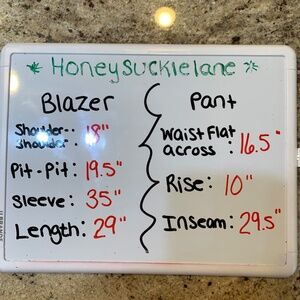 * Honeysucklelane *
Blazer
Shoulder-
shoulder : 18"
Pit-Pit: 19.5"
Sleeve: 35"
Length: 29"
Pant
Waist Flat
across : 16.5"
Rise: 10"
Inseam: 29.5"